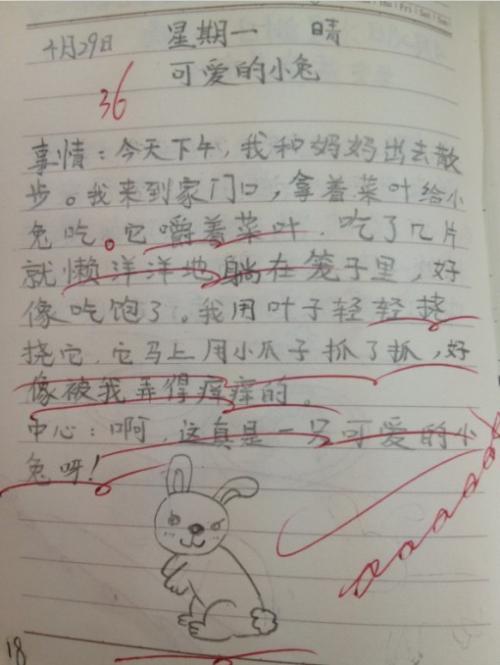 4月29日 星期一 晴
可爱的小兔
36
事情：今天下午，我和妈妈出去散
步。我来到家门口，拿着菜叶给小
兔吃。它嚼着菜叶．吃了几片
就懒洋洋地躺在笼子里，好
像吃饱了。我用叶子轻轻挠
挠它，它马上用小爪子抓了抓，好
像被我弄得痒痒的。
中心：啊，这真是一只可爱的小
兔呀！
18